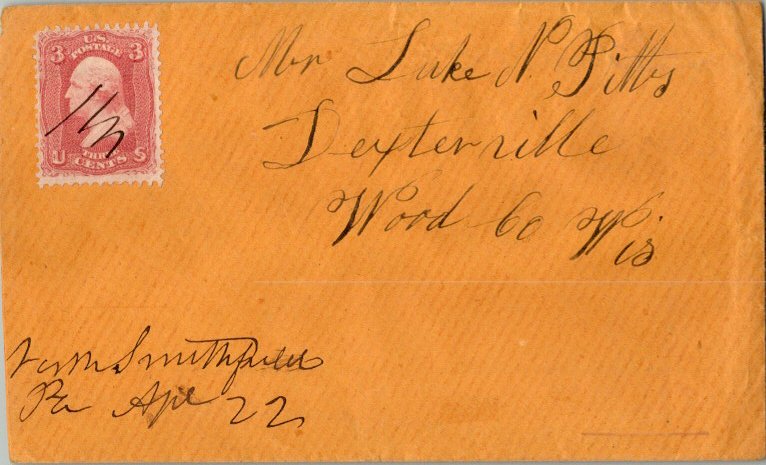 3 U.S. 3
POSTAGE
U THREE S
CENTS
Mr Luke N. Pitts
Dexterville
Wood Co Wis
North Smithfield
Pa Apl 22